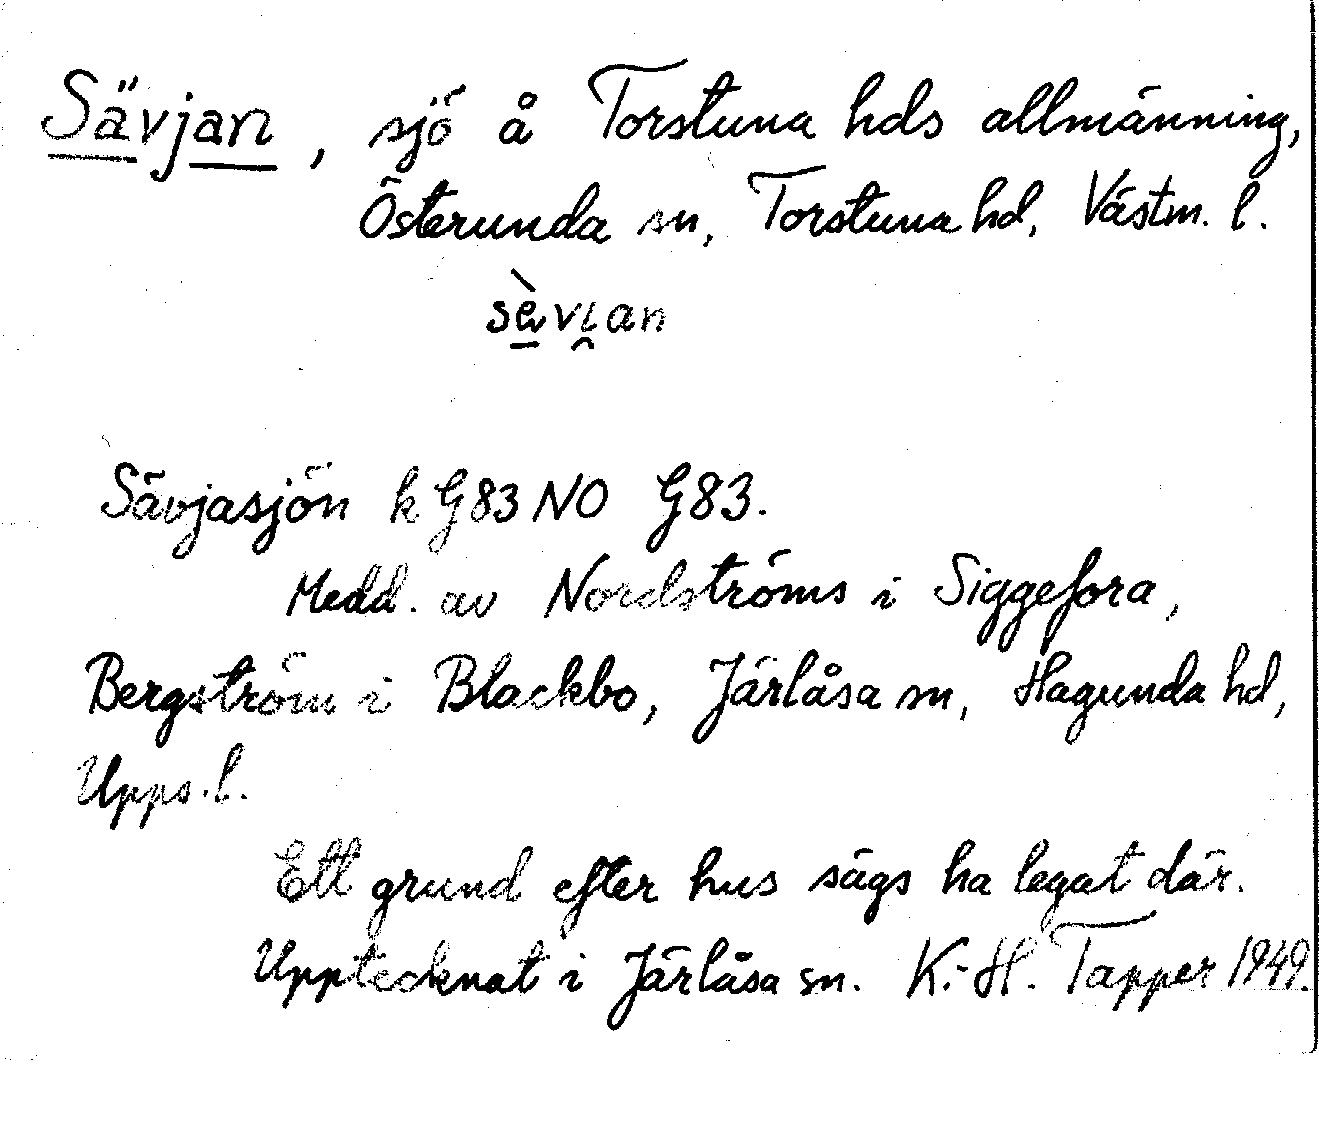 Sävjan, sjö å Torstuna hds allmänning,
Österunda sn, Torstuna hd, Västm. l.
sèvi̯an
Sävjasjön k G83 NO G83.
Medd. av Nordströms i Siggefora,
Bergström i Blackbo, Järlåsa sn, Hagunda hd,
Upps. l.
Ett grund efter hus sägs ha legat där.
Upptecknat i Järlåsa sn. K.-H. Tapper 1949.